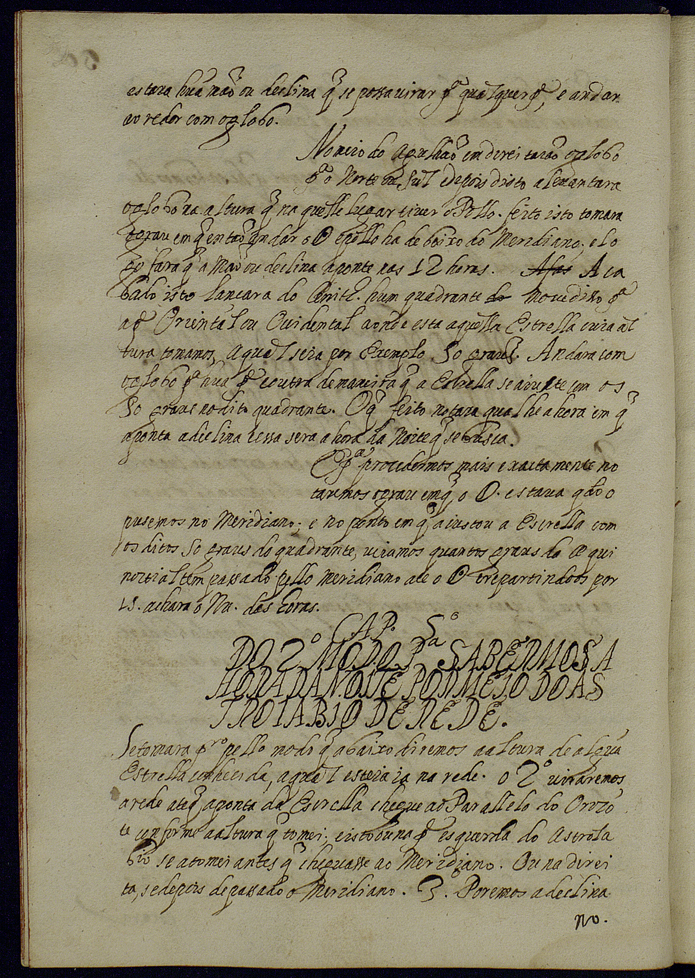 estara hũa mão ou declina q̃ se possa virar pª qualquer pᵗᵉ, e andar
ao redor com o globo.
No meio do Agulhão em direitarão o globo
pª o Norte ou Sul e depois disto alevantara
o globo na altura q̃ na quelle lugar tiver o Pollo. feito isto tomara
o grau em q̃ entaõ andar o ʘ e pollo ha debaixo do Meridiano; e lo
go fara q̃ a Mão ou declina aponte nas 12 horas. Aca
bado isto lancara do Zenith. hum quadrante movediso pª
a pᵗᵉ Oriental ou Ocidental aonde esta aquella Estrella cuia al
tura tomamos, a qual seia por Exemplo 50 graus. Andara com
o globo pª hũa pᵗᵉ e outra de maneira q̃ a Estrella se aiuste em os
50 graus no dito quadrante. O q̃ feito notara qual he a hora em q̃
aponta a declina e essa sera a hora da Noite q̃ se busca.
E pª procedermos mais exactamente no
taremos o grau em q̃ o ʘ. estava qdo o
pusemos no Meridiano; e no ponto em q̃ aiustou a Estrella com
os ditos 50 graus do quadrante, veiamos quantos graus da equi
noctial tem passado pello Meridiano ate o ʘ e repartindoos por
15. achara o Nu. das horas.
CAP. 5º
DO 2º MODO Pª SABERMOS A
HORA DA NOITE POR MEIO DO AS
TROLABIO DE REDE.
Se tomara prº pello modo q̃ abaixo diremos a altura de algũa
Estrella conhecida, a qual esteia ia na rede. o 2º viraremos
a rede ate q̃ a ponta da Estrella chegue ao Parallelo do Orizõ
te conforme a altura q̃ tomei; e isto bu na pᵗᵉ esquerda do Astrola
bio se a tomei antes q̃ chegasse ao Meridiano. Ou na direi
ta, se depois de passado o Meridiano. 3º. Poremos a declina
no.